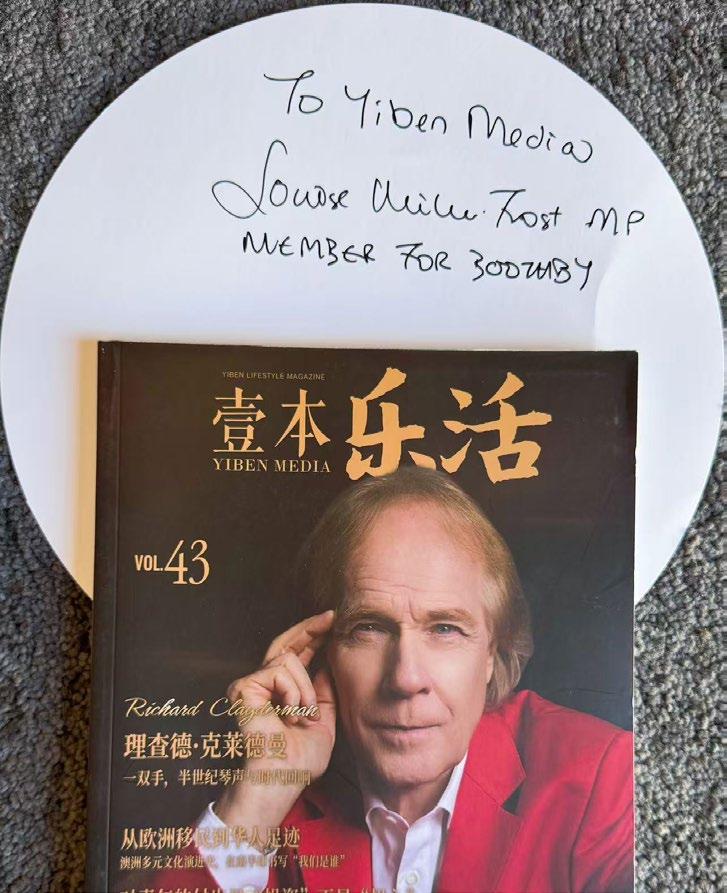 To Yiben Media
Louise Miller-Frost MP
MEMBER FOR BOOTHBY
YIBEN LIFESTYLE MAGAZINE
壹本 乐活
YIBEN MEDIA
VOL.43
Richard Clayderman
理查德·克莱德曼
一双手，半世纪琴声与时代回响
从欧洲移民到华人足迹
澳洲多元文化演进史，在南半球书写“我们是谁”